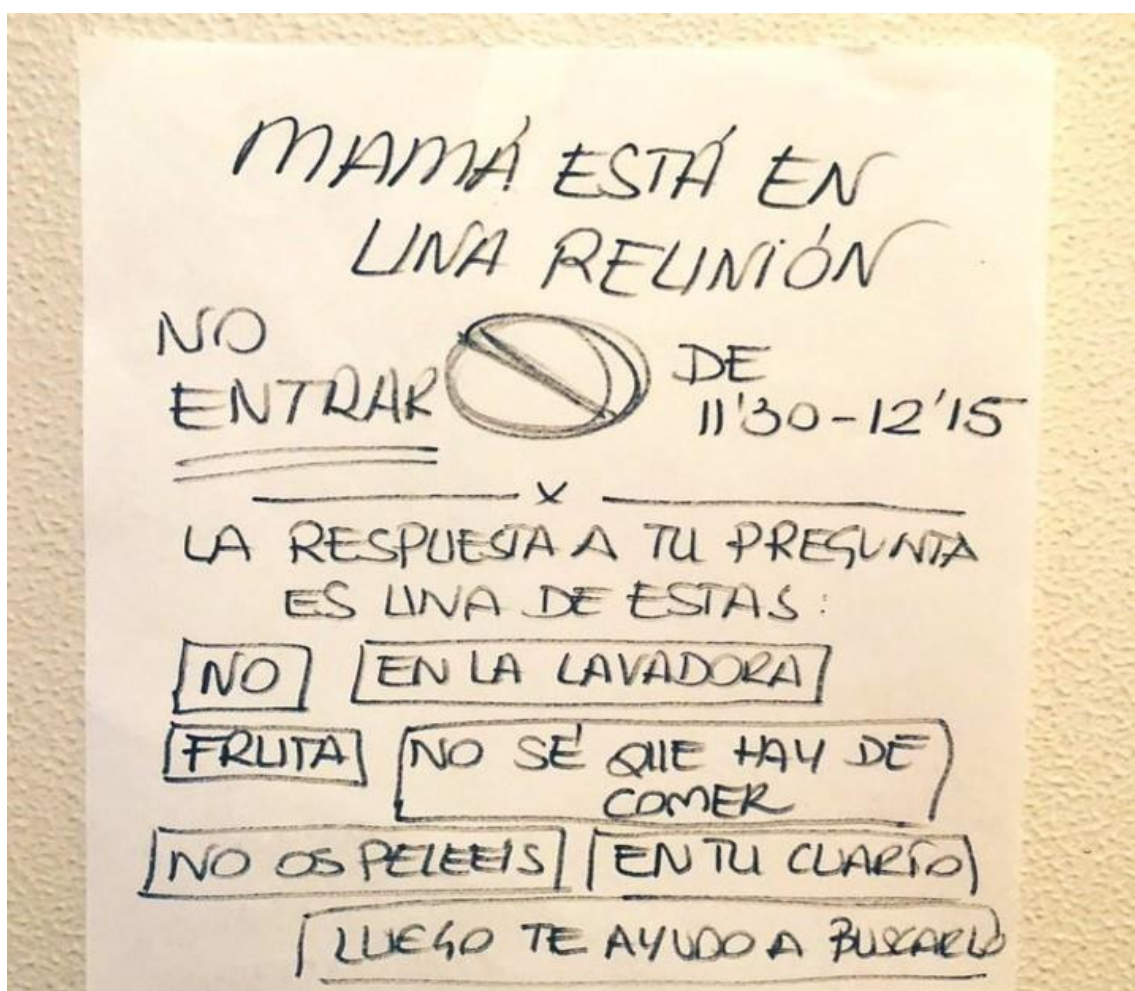 MAMÁ ESTÁ EN
UNA REUNIÓN
NO
ENTRAR
DE
11'30-12'15
x
LA RESPUESTA A TU PREGUNTA
ES UNA DE ESTAS:
NO EN LA LAVADORA
FRUTA NO SÉ QUE HAY DE
COMER
NO OS PELEEIS EN TU CUARTO
LUEGO TE AYUDO A BUSCARLO